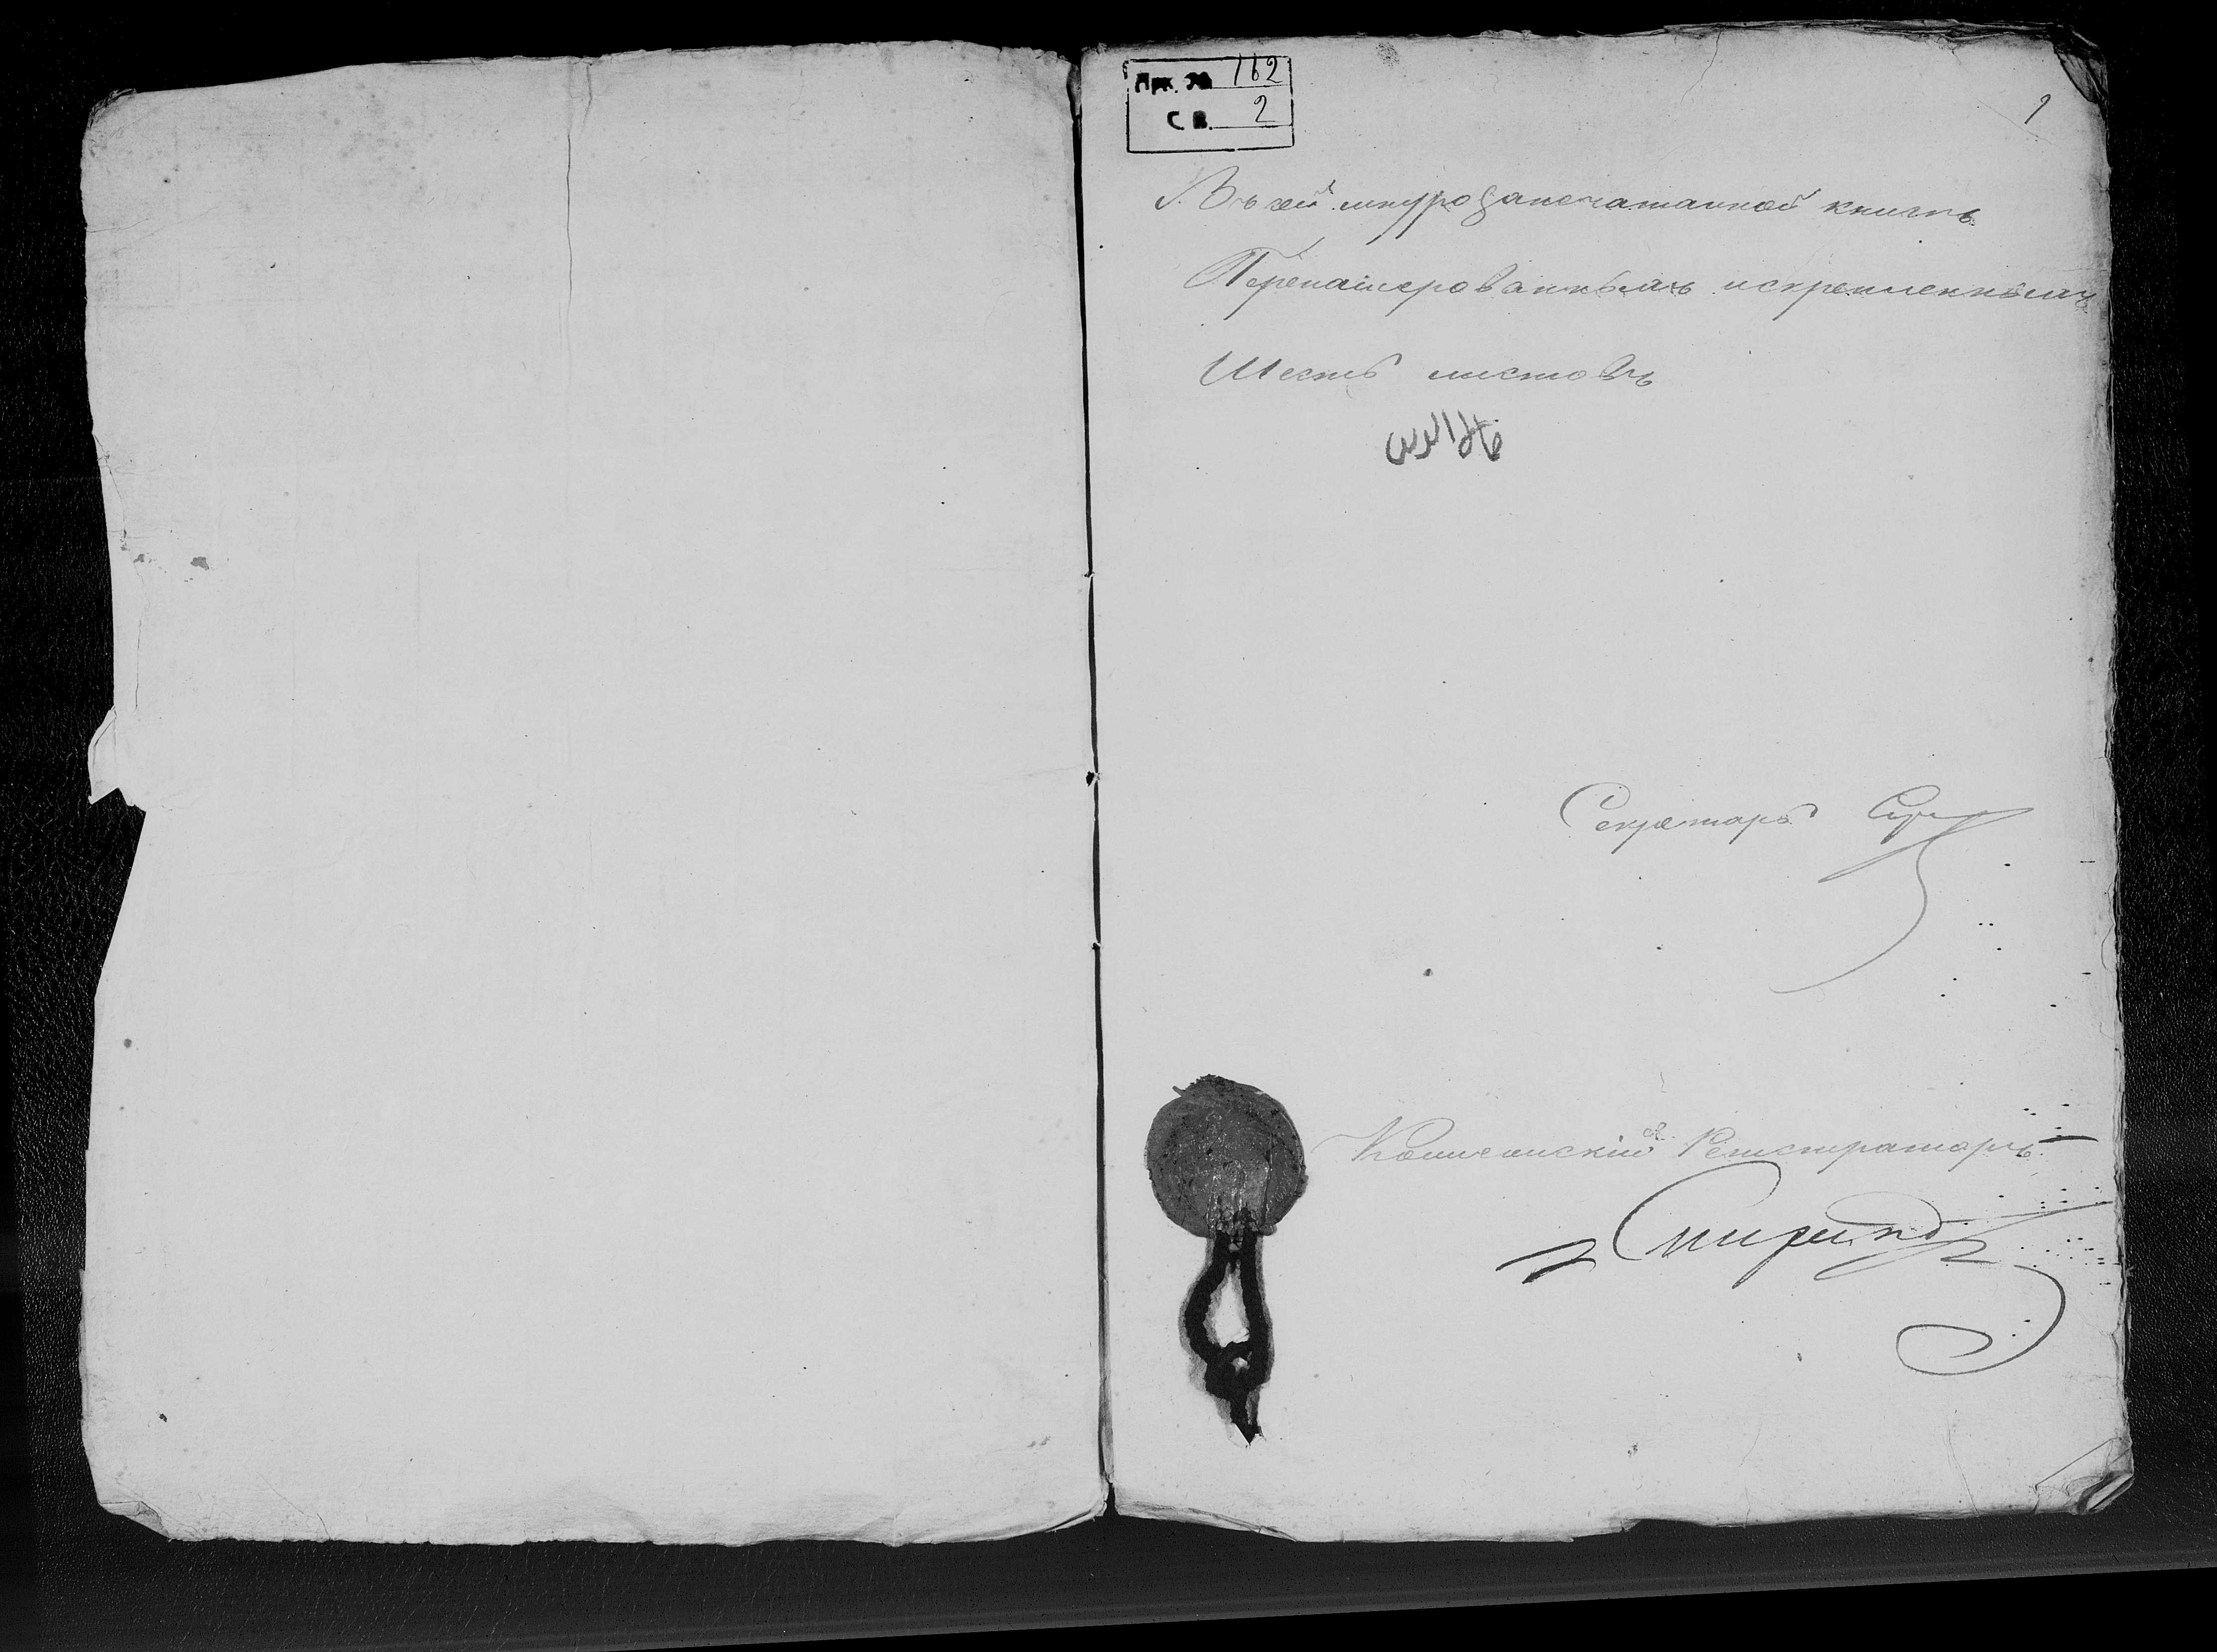 Прк. № 162
Св. 2
1
Въ сей шнурозапечатанной книгѣ
Перенамерованныхъ искрепленныхъ
Шесть листовъ
Секретарь
Коллежскій Регистраторъ